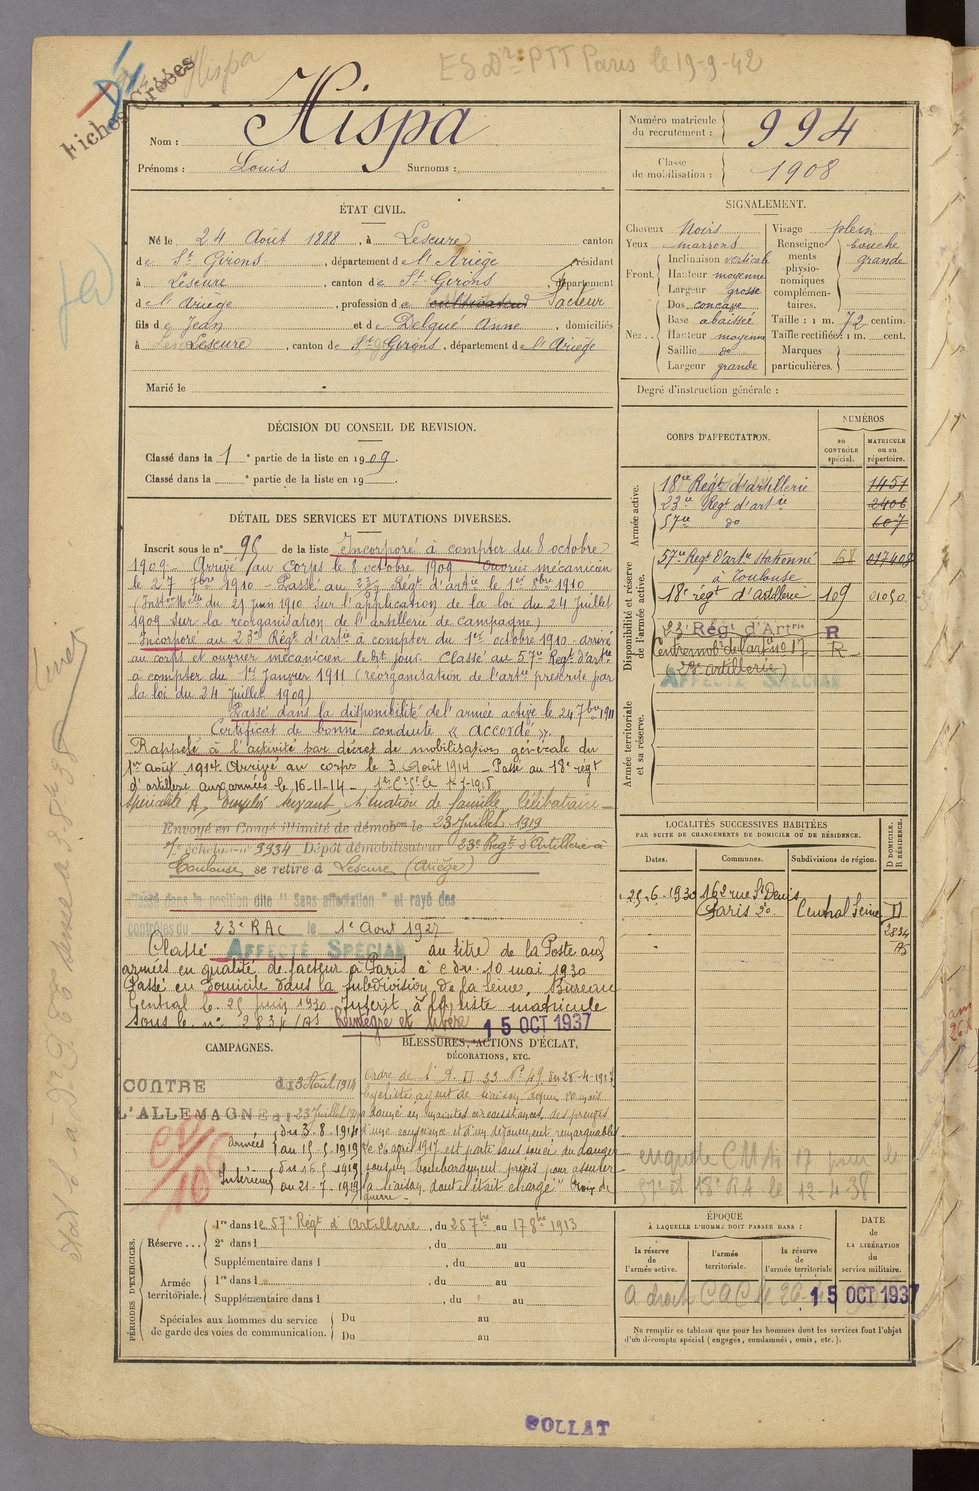 Hispa
ES Dr PTT Paris le 19-9-42
Fiches Croées
Nom : Hispa
Prénoms : Louis Surnoms :
Numéro matricule du recrutement : 994
Classe de mobilisation : 1908
ÉTAT CIVIL.
Né le 24 Août 1888, à Lescure canton
de St Girons, département de l'Ariège, résidant
à Lescure, canton de St Girons, département
d e l'Ariège, profession de cultivateur facteur
fils de Jean et de Delqué Anne, domiciliés
à Lescure, canton de St Girons, département de l'Ariège
Marié le
SIGNALEMENT.
Cheveux Noirs
Yeux marrons
Front. Inclinaison verticale
Hauteur moyenne
Largeur grosse
Nez. Dos concave
Base abaissée
Hauteur moyenne
Saillie do
Largeur grande
Visage plein
Renseignements physionomiques complémentaires. bouche grande
Taille : 1 m. 72 centim.
Taille rectifiée : 1 m. cent.
Marques particulières.
Degré d'instruction générale :
DÉCISION DU CONSEIL DE REVISION.
Classé dans la 1e partie de la liste en 1909.
Classé dans la e partie de la liste en 19
CORPS D'AFFECTATION.
NUMÉROS
au CONTRÔLE spécial.
MATRICULE ou au répertoire.
Armée active.
18e Régt d'artillerie 1451
23e Régt d'artie 2406
57e do 607
Disponibilité et réserve de l'armée active.
57e Regt d'artie stationné à Toulouse 017408
18e régt d'artillerie 109 01050
23e Régt d'Artrie R
Centre mobr de l'artie no 17 R
(23e artillerie)
AFFECTÉ SPÉCIAL
Armée territoriale et sa réserve.
DÉTAIL DES SERVICES ET MUTATIONS DIVERSES.
Inscrit sous le no 95 de la liste Incorporé à compter du 8 octobre
1909. Arrivé au Corps le 8 octobre 1909 Ouvrier mécanicien
le 27 7bre 1910 - Passé au 23e Régt d'artie le 1er 8bre 1910
(Instion Mlle du 21 Juin 1910 sur l'application de la loi du 24 Juillet
1909 sur la réorganisation de l'artillerie de campagne)
Incorporé au 23e Régt d'artie à compter du 1er octobre 1910 - arrivé
au corps et ouvrier mécanicien le dit jour. Classé au 57e Régt d'artie
à compter du 1er Janvier 1911 (réorganisation de l'artie prescrite par
la loi du 24 Juillet 1909)
Passé dans la disponibilité de l'armée active le 24 7bre 1911
Certificat de bonne conduite « accordé ».
Rappelé à l'activité par décret de mobilisation générale du
1er août 1914. Arrivé au corps le 3 Août 1914 - Passé au 18e régt
d'artillerie aux armées le 16-11-14 -
situation de famille, Célibataire -
Envoyé en Congé illimité de démobon le 23 Juillet 1919
7e échelon no 3934 Dépôt démobilisateur 23e Régt d'Artillerie à
Toulouse se retire à Lescure (Ariège)
Classé dans la position dite "Sans affectation" et rayé des
contrôles du 23e RAC le 1e Aout 1927
Classé AFFECTÉ SPÉCIAL au titre de la Poste aux
armées en qualité de facteur à Paris à c du 10 mai 1930
Passé en domicile dans la subdivision de la Seine, Bureau
Central le 25 juin 1930. Inscrit à la liste matricule
sous le no 2834/AS Réintégré et libéré 15 OCT 1937
LOCALITÉS SUCCESSIVES HABITÉES
PAR SUITE DE CHANGEMENTS DE DOMICILE OU DE RÉSIDENCE.
Dates. Communes. Subdivisions de région. D DOMICILE. R RÉSIDENCE.
25.6.1930 162 rue St Denis Paris 2e Central Seine D
2834 AS
enquête CMAi 17 pour le
57e et 18e RA le 12-4-38
CAMPAGNES.
CONTRE du 3 Août 1914
L'ALLEMAGNE 23 Juillet 1919
Armées du 3.8.1914
au 15.5.1919
Intérieur du 16.5.1919
au 21.7.1919
BLESSURES, ACTIONS D'ÉCLAT, DÉCORATIONS, ETC.
Ordre de l'A. D 33 No 49 du 28-4-1917
Cycliste agent de liaison depuis 20 mois
a donné en maintes circonstances des preuves
d'une conscience et d'un dévouement remarquables
Le 16 avril 1917 est parti sans souci du danger
sous un bombardement précis pour assurer
la liaison dont il était chargé" Croix de
guerre -
PÉRIODES D'EXERCICES.
Réserve ... 1re dans le 57e Régt d'Artillerie, du 25 7bre au 17 8bre 1913
2e dans l , du au
Supplémentaire dans l , du au
Armée territoriale. 1re dans l , du au
Supplémentaire dans l , du au
Spéciales aux hommes du service de garde des voies de communication. Du au
Du au
ÉPOQUE
À LAQUELLE L'HOMME DOIT PASSER DANS :
la réserve de l'armée active. l'armée territoriale. la réserve de l'armée territoriale
DATE de LA LIBÉRATION du service militaire.
A droit CAC le 26 15 OCT 1937
Ne remplir ce tableau que pour les hommes dont les services font l'objet
d'un décompte spécial (engagés, condamnés, omis, etc.).
COLLAT